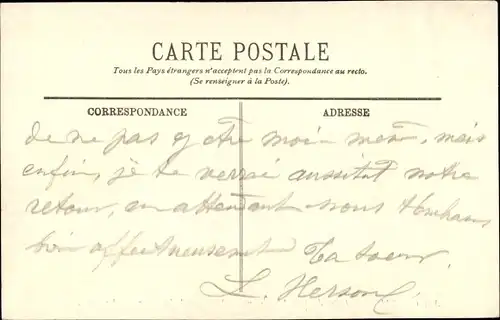 CARTE POSTALE
Tous les Pays étrangers n'acceptent pas la Correspondance au recto.
(Se renseigner à la Poste).
CORRESPONDANCE
ADRESSE
de ne pas y être moi-même, mais
enfin, je te verrai aussitôt notre
retour, en attendant nous t'embrassons
bien affectueusement Ta soeur.
L. Herson